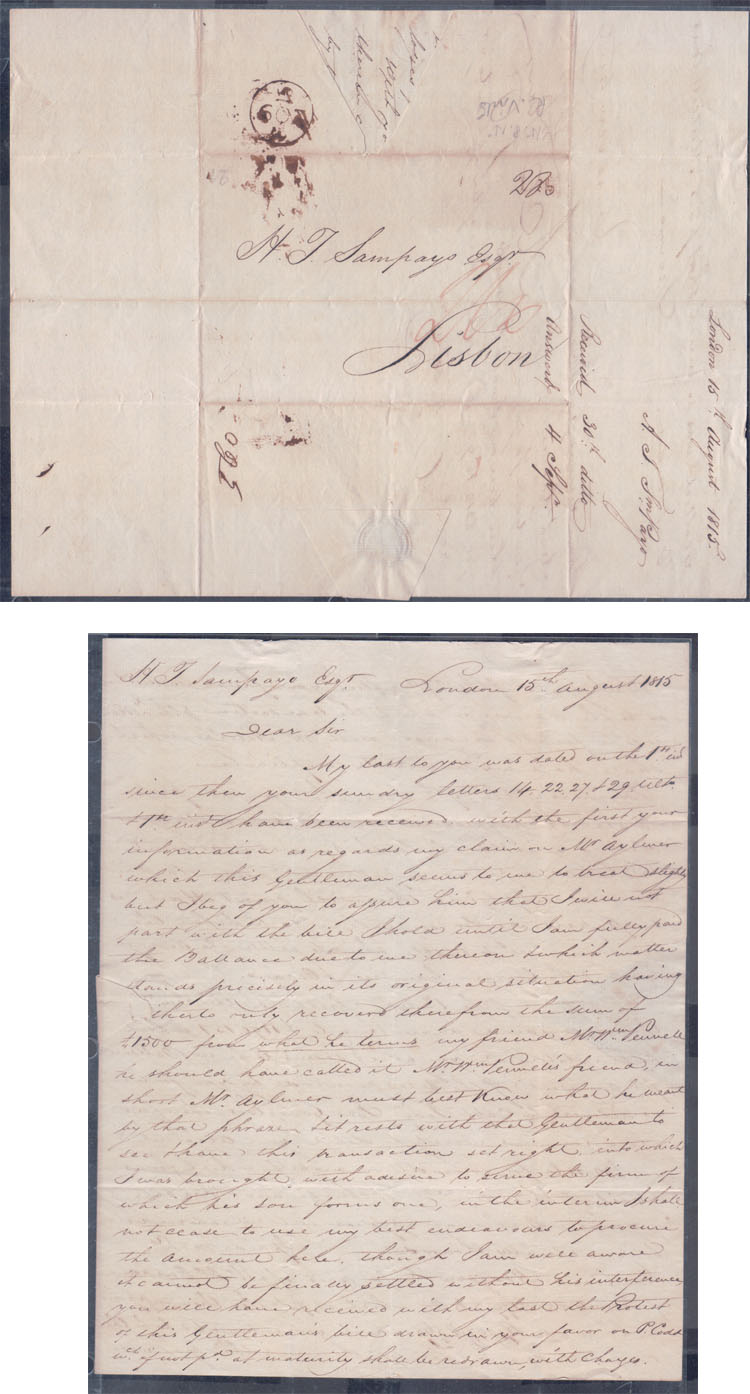 H. T. Sampayo Esqr.
Lisbon
London 15th August 1815
A. T. Sampayo
Received 30th ditto
Answerd 4 Septr.
H. T. Sampayo Esqr. London 15th August 1815
Dear Sir
My last to you was dated on the 1st ind
since then your sundry letters 14. 22. 27. & 29. ulto.
& 1st inst have been received. with the first your
information as regards my claim on Mr Aylmer
which this Gentleman seems to me to treat slightly
but I beg of you to assure him that I will not
part with the bill I hold until I am fully paid
the Ballance due to me thereon & which matter
stands precisely in its original situation having
therto only recovered therefrom the sum of
£1500 from what he terms my friend Mr. Wm Pennell
he should have called it Mr. Wm Pennell's friend, in
short Mr. Aylmer must best know what he meant
by that phrase, & it rests with that Gentleman to
see & have this transaction set right, into which
I was brought, with a desire to serve the firm of
which his son forms one, in the interim I shall
not cease to use my best endeavours to procure
the amount here, though I am well aware
it cannot be finally settled without his interference,
you will have received with my last the Protest
of this Gentleman's bill drawn in your favor on P. Codd
wh. if not pd. at maturity shall be redrawn, with Charges.